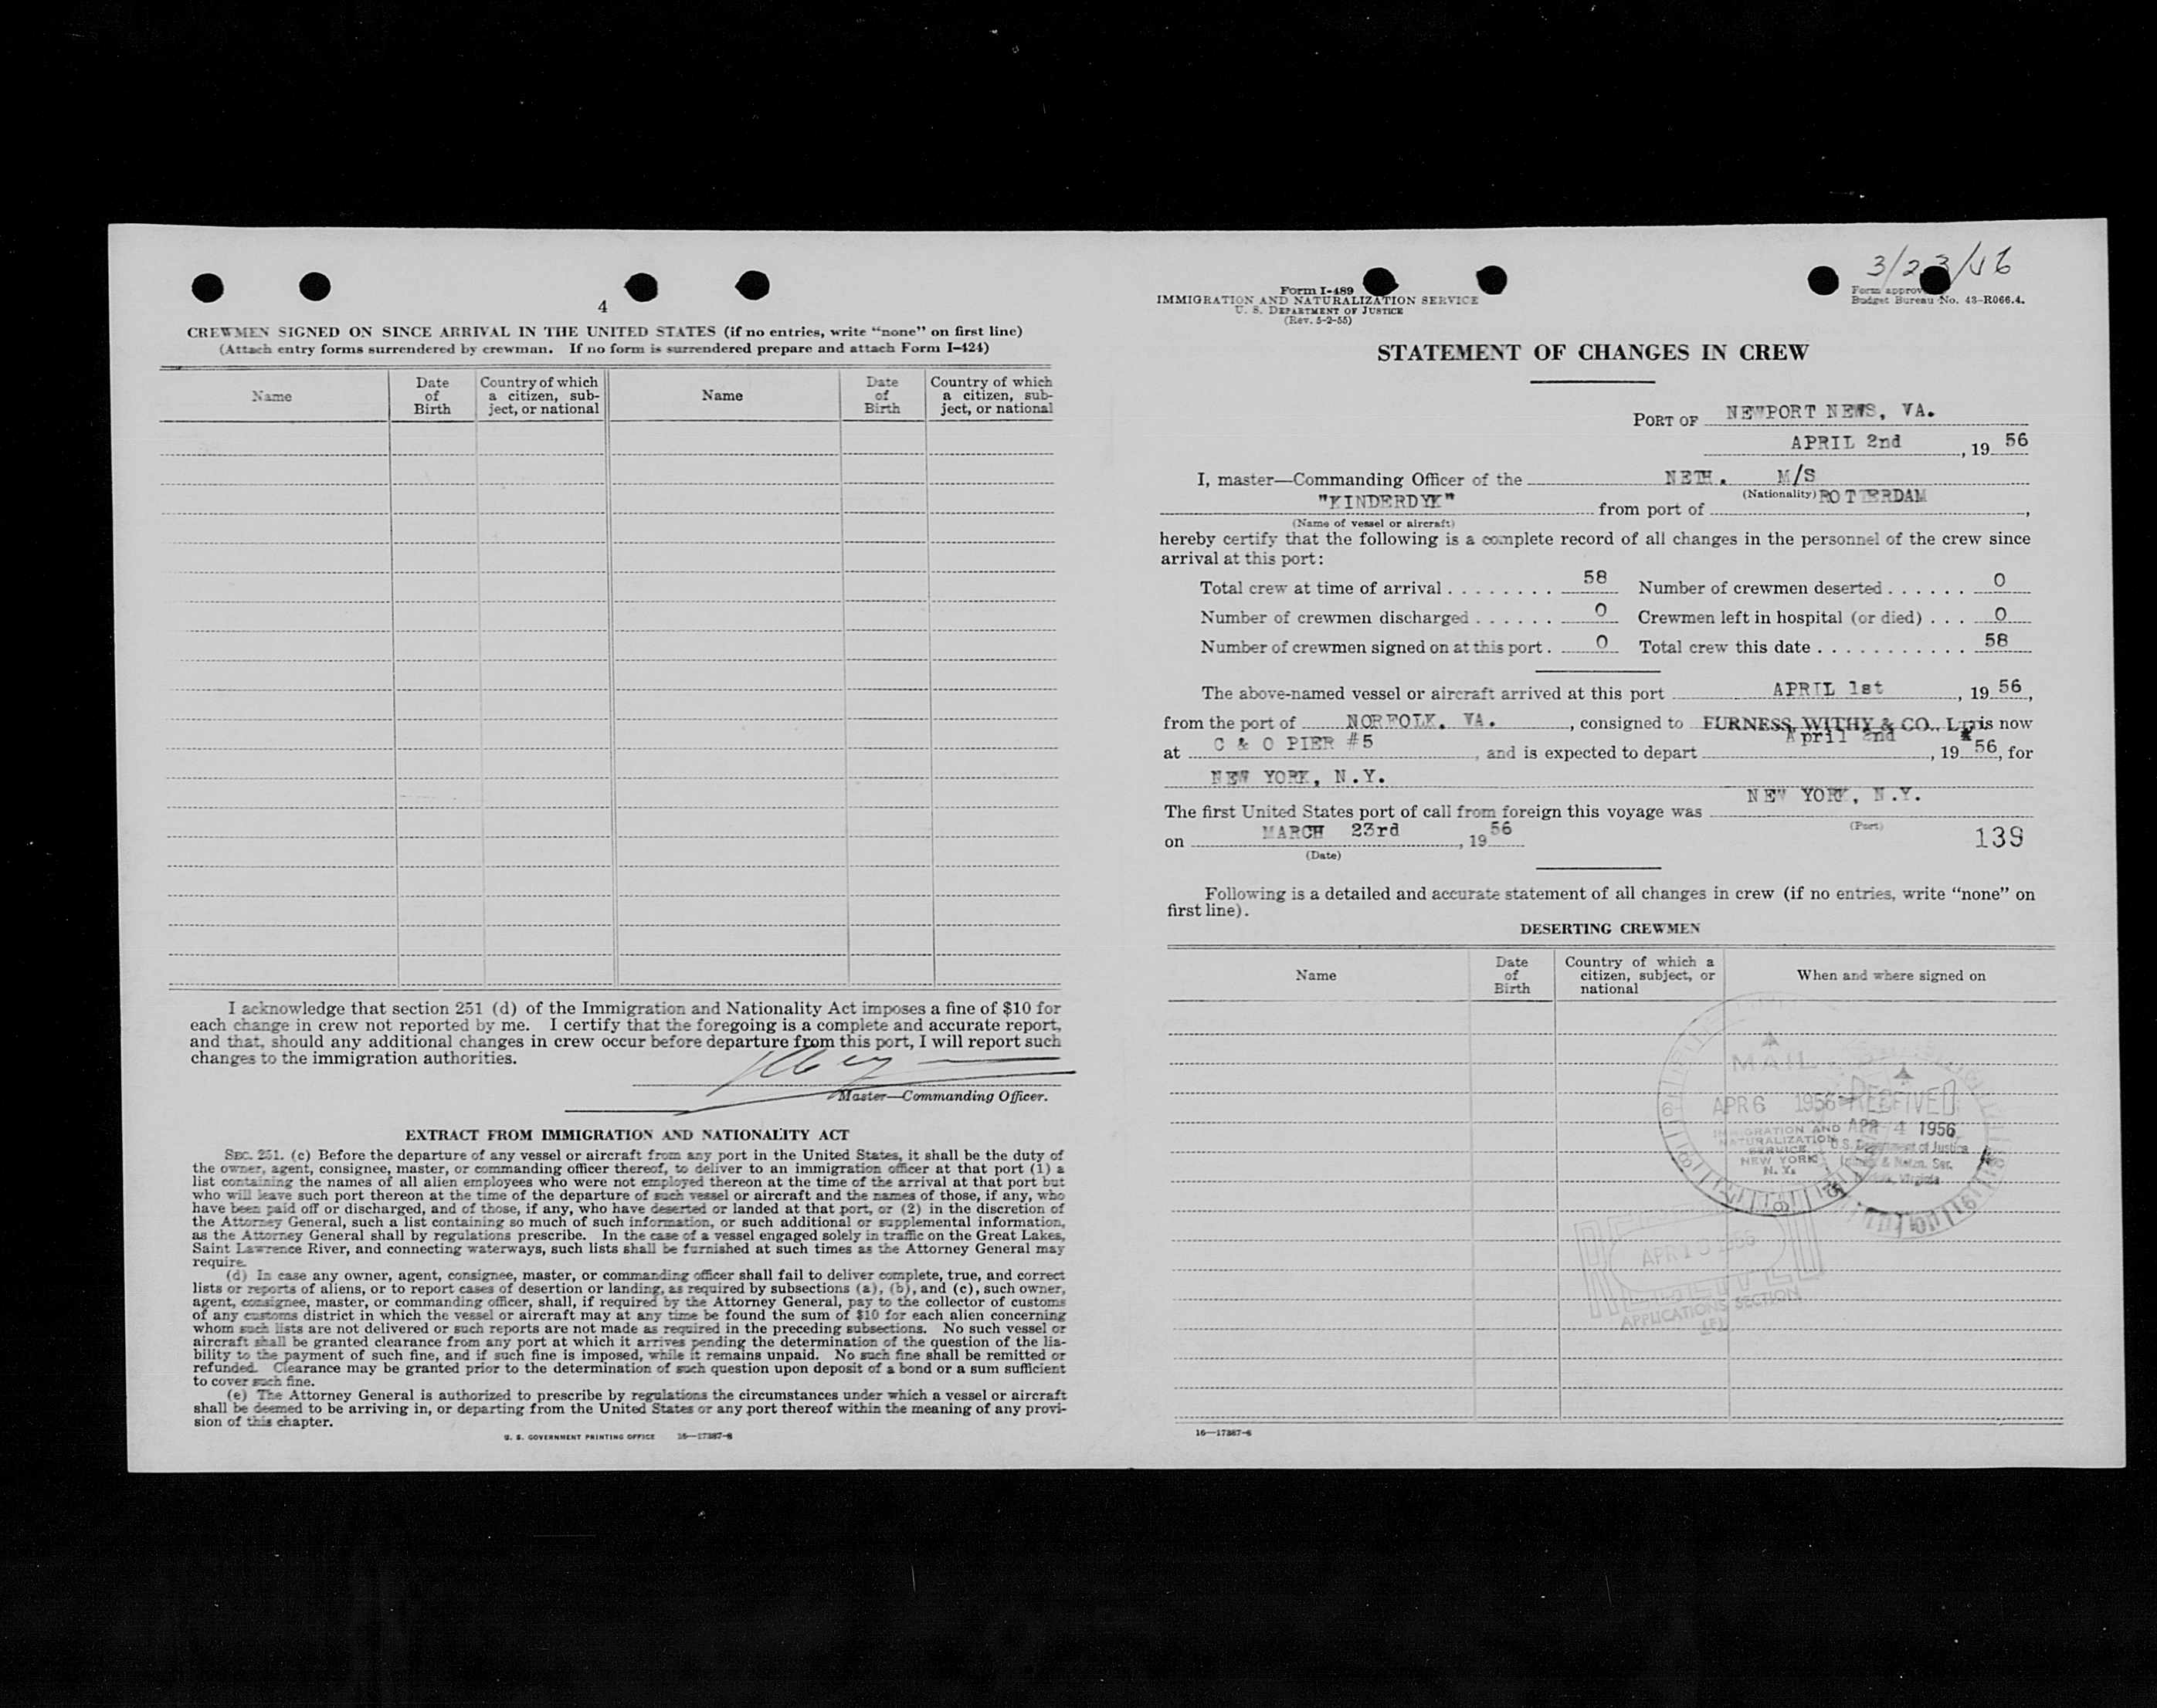 4
CREWMEN SIGNED ON SINCE ARRIVAL IN THE UNITED STATES (if no entries, write “none” on first line)
(Attach entry forms surrendered by crewman. If no form is surrendered prepare and attach Form I–424)
Name
Date of Birth
Country of which a citizen, sub-ject, or national
Name
Date of Birth
Country of which a citizen, sub-ject, or national
I acknowledge that section 251 (d) of the Immigration and Nationality Act imposes a fine of $10 for
each change in crew not reported by me. I certify that the foregoing is a complete and accurate report,
and that, should any additional changes in crew occur before departure from this port, I will report such
changes to the immigration authorities.
Master—Commanding Officer.
EXTRACT FROM IMMIGRATION AND NATIONALITY ACT
SEC. 251. (c) Before the departure of any vessel or aircraft from any port in the United States, it shall be the duty of
the owner, agent, consignee, master, or commanding officer thereof, to deliver to an immigration officer at that port (1) a
list containing the names of all alien employees who were not employed thereon at the time of the arrival at that port but
who will leave such port thereon at the time of the departure of such vessel or aircraft and the names of those, if any, who
have been paid off or discharged, and of those, if any, who have deserted or landed at that port, or (2) in the discretion of
the Attorney General, such a list containing so much of such information, or such additional or supplemental information,
as the Attorney General shall by regulations prescribe. In the case of a vessel engaged solely in traffic on the Great Lakes,
Saint Lawrence River, and connecting waterways, such lists shall be furnished at such times as the Attorney General may
require.
(d) In case any owner, agent, consignee, master, or commanding officer shall fail to deliver complete, true, and correct
lists or reports of aliens, or to report cases of desertion or landing, as required by subsections (a), (b), and (c), such owner,
agent, consignee, master, or commanding officer, shall, if required by the Attorney General, pay to the collector of customs
of any customs district in which the vessel or aircraft may at any time be found the sum of $10 for each alien concerning
whom such lists are not delivered or such reports are not made as required in the preceding subsections. No such vessel or
aircraft shall be granted clearance from any port at which it arrives pending the determination of the question of the lia-
bility to the payment of such fine, and if such fine is imposed, while it remains unpaid. No such fine shall be remitted or
refunded. Clearance may be granted prior to the determination of such question upon deposit of a bond or a sum sufficient
to cover such fine.
(e) The Attorney General is authorized to prescribe by regulations the circumstances under which a vessel or aircraft
shall be deemed to be arriving in, or departing from the United States or any port thereof within the meaning of any provi-
sion of this chapter.
U. S. GOVERNMENT PRINTING OFFICE 16—17387-6
3/23/56
Form I-489
IMMIGRATION AND NATURALIZATION SERVICE
U. S. DEPARTMENT OF JUSTICE
(Rev. 5-2-55)
Form approv
Budget Bureau No. 43-R066.4.
STATEMENT OF CHANGES IN CREW
PORT OF NEWPORT NEWS, VA.
APRIL 2nd, 19 56
I, master—Commanding Officer of the NETH. M/S
(Nationality)
"KINDERDYK" from port of ROTTERDAM,
(Name of vessel or aircraft)
hereby certify that the following is a complete record of all changes in the personnel of the crew since
arrival at this port:
Total crew at time of arrival . . . . . . . . 58 Number of crewmen deserted . . . . . . 0
Number of crewmen discharged . . . . . . 0 Crewmen left in hospital (or died) . . . 0
Number of crewmen signed on at this port . 0 Total crew this date . . . . . . . . . . . 58
The above-named vessel or aircraft arrived at this port APRIL 1st, 19 56,
from the port of NORFOLK. VA., consigned to FURNESS, WITHY & CO., LTD is now
at C & O PIER #5, and is expected to depart April 2nd, 19 56, for
NEW YORK, N.Y.
The first United States port of call from foreign this voyage was NEW YORK, N.Y.
(Port)
on MARCH 23rd, 19 56
(Date)
139
Following is a detailed and accurate statement of all changes in crew (if no entries, write “none” on
first line).
DESERTING CREWMEN
Name
Date of Birth
Country of which a citizen, subject, or national
When and where signed on
MAIL
APR 6 1956
IMMIGRATION AND
NATURALIZATION
SERVICE
NEW YORK
N. Y.
RECEIVED
APR 4 1956
U.S. Department of Justice
& Natzn. Ser.
Virginia
RECEIVED
APPLICATIONS SECTION
16—17387-6